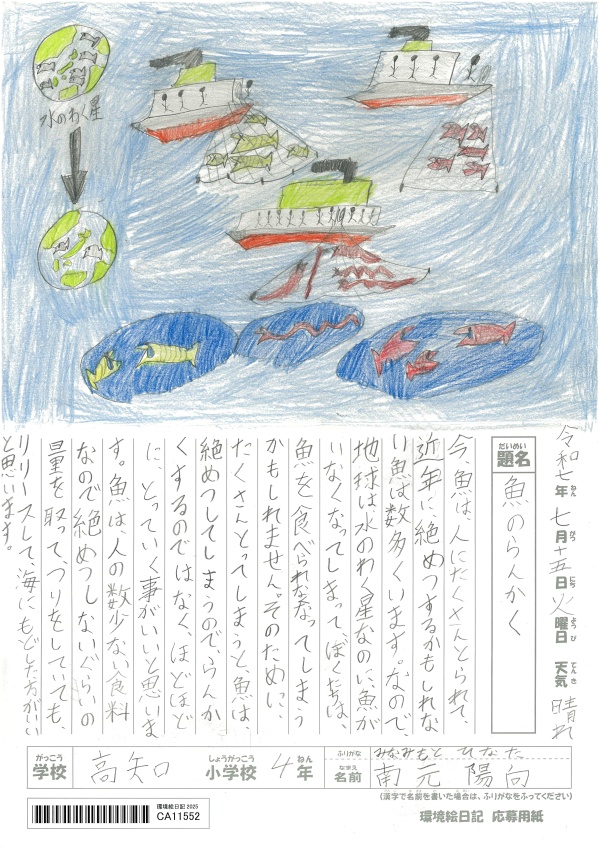 水のわく星
令和七年七月十五日火曜日 天気 晴れ
ねん がつ にち ようび てんき
だいめい
題名
魚のらんかく
今、魚は、人にたくさんとられて、
近年に絶めつするかもしれな
い魚は数多くいます。なので、
地球は水のわく星なのに、魚が
いなくなってしまって、ぼくたちは、
魚を食べられなくなってしまう
かもしれません。そのため、
たくさんとってしまうと、魚は、
絶めつしてしまうので、らんか
くするのではなく、ほどほど
に、とっていく事がいいと思いま
す。魚は、人の数少ない食料
なので絶めつしないぐらいの
量を取って、つりをしていても、
リリースして、海にもどした方がいい
と思います。
がっこう
学校
高知
しょうがっこう
小学校
4年
ねん
ふりがな
みなみもと ひなた
なまえ
名前
南元 陽向
(漢字で名前を書いた場合は、ふりがなをふってください)
環境絵日記 2025
CA11552
環境絵日記 応募用紙